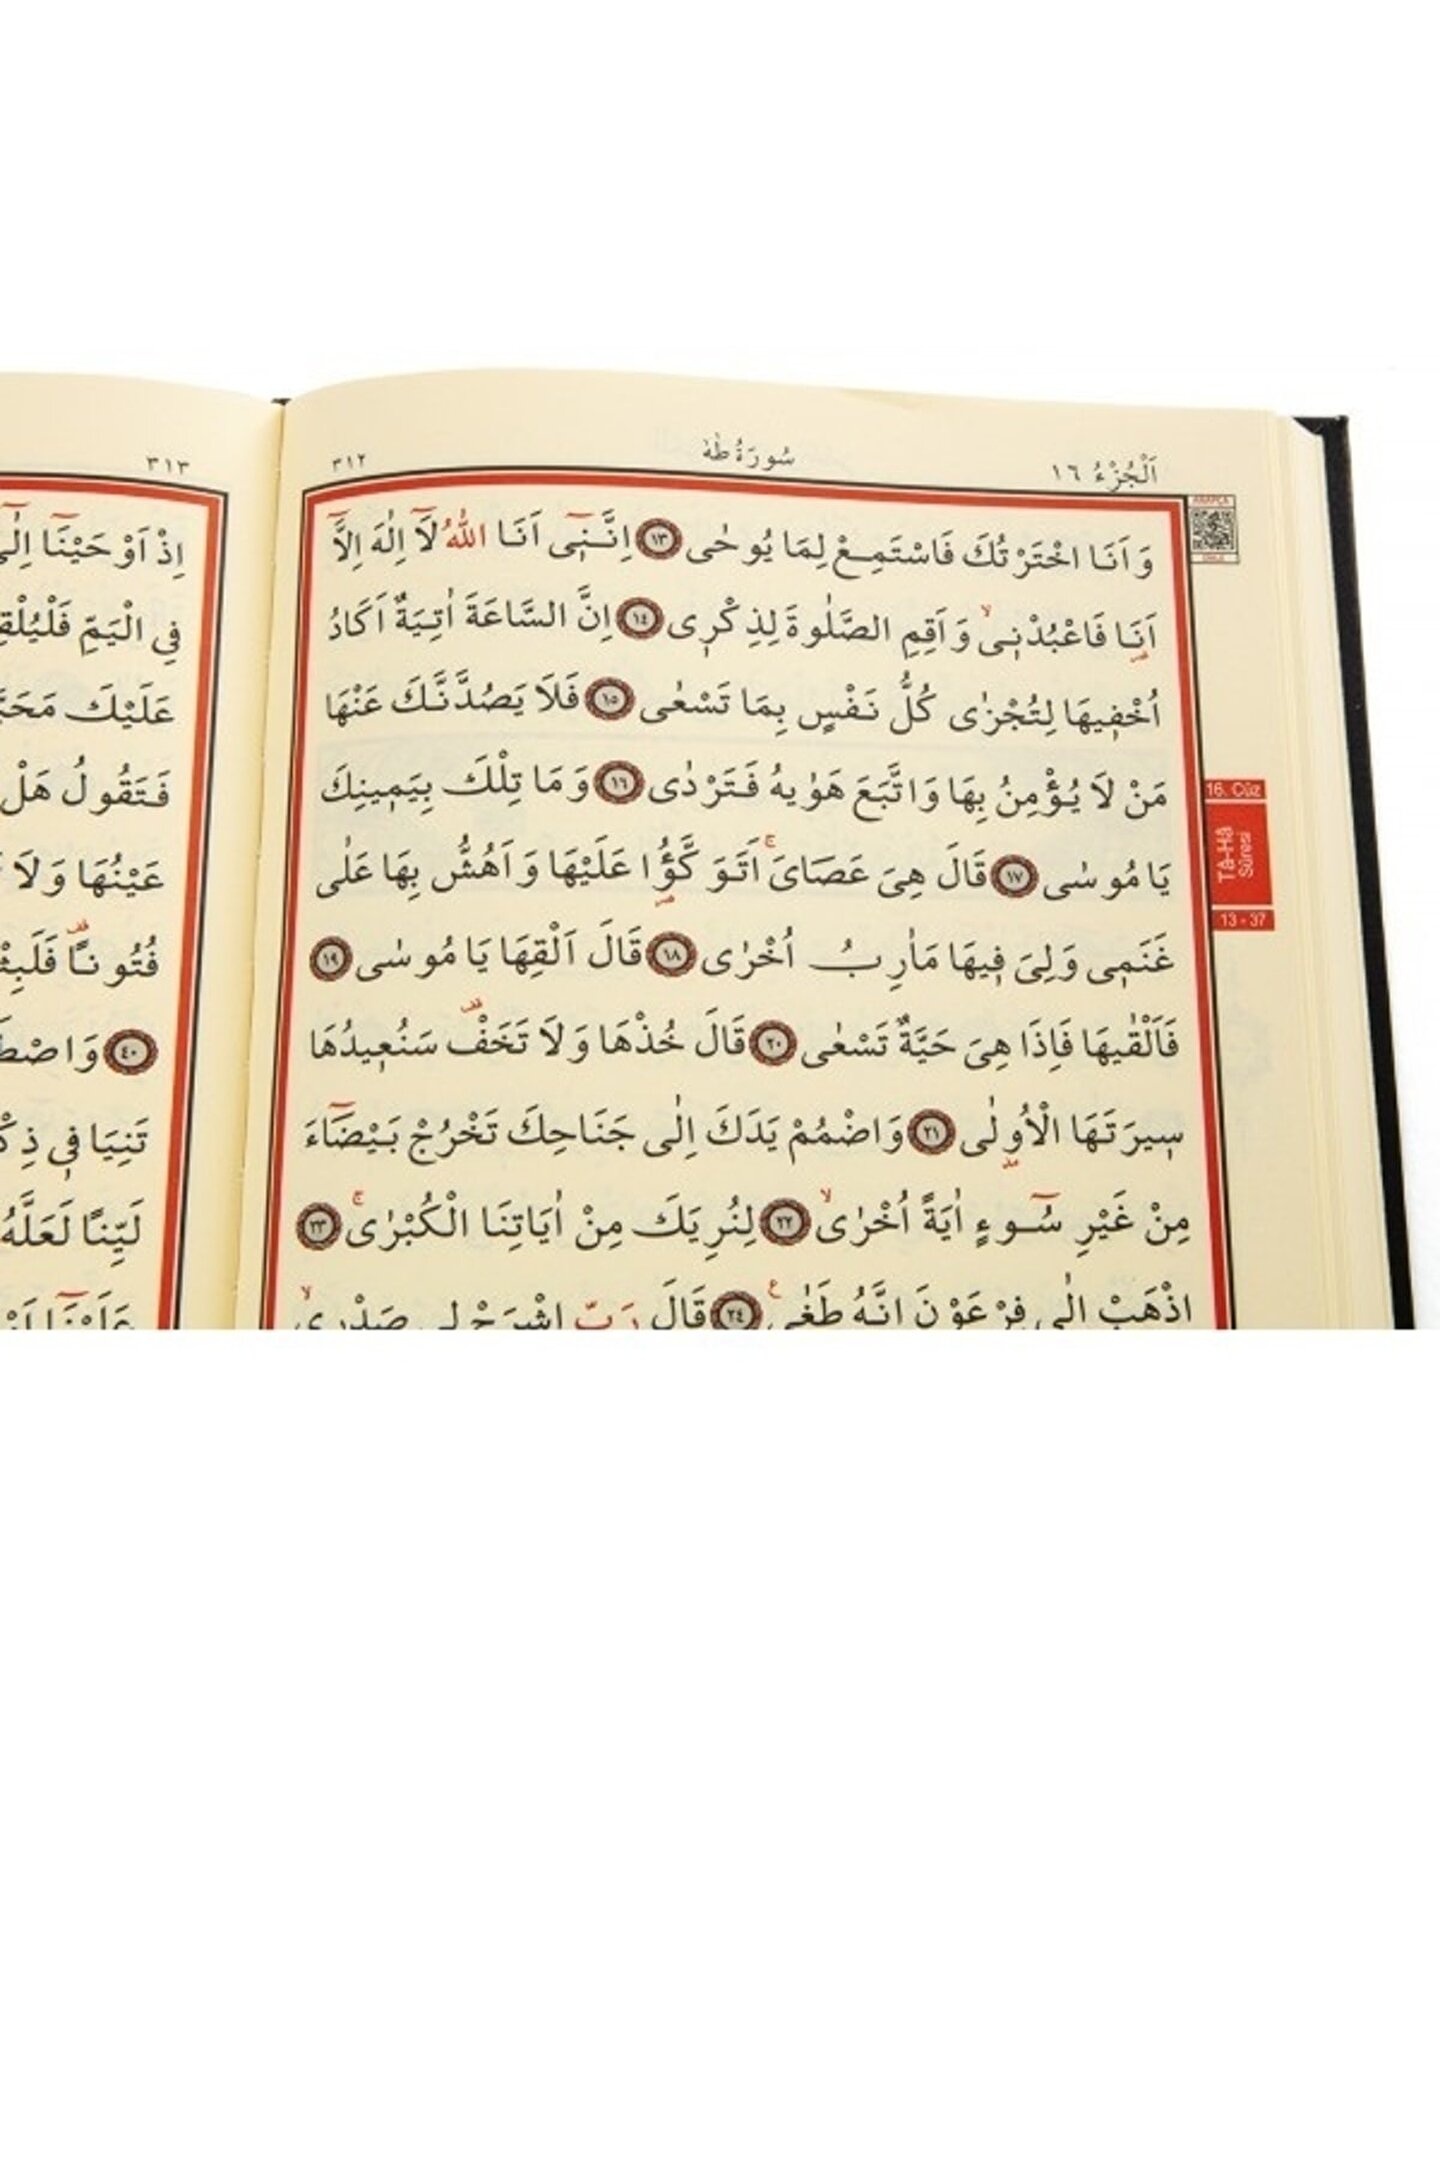 اَلْجُزْءُ ١٦
سُورَةُ طٰهٰ
٣١٢
وَاَنَا اخْتَرْتُكَ فَاسْتَمِعْ لِمَا يُوحٰى ﴿١٣﴾ اِنَّـنٖٓى اَنَا اللّٰهُ لَٓا اِلٰهَ اِلَّٓا
اَنَا۬ فَاعْبُدْنٖىۙ وَاَقِمِ الصَّلٰوةَ لِذِكْرٖى ﴿١٤﴾ اِنَّ السَّاعَةَ اٰتِيَةٌ اَكَادُ
اُخْفٖيهَا لِتُجْزٰى كُلُّ نَفْسٍ بِمَا تَسْعٰى ﴿١٥﴾ فَلَا يَصُدَّنَّكَ عَنْهَا
مَنْ لَا يُؤْمِنُ بِهَا وَاتَّبَعَ هَوٰيهُ فَتَرْدٰى ﴿١٦﴾ وَمَا تِلْكَ بِيَمٖينِكَ
يَا مُوسٰى ﴿١٧﴾ قَالَ هِىَ عَصَاىَۚ اَتَوَكَّؤُ۬ا عَلَيْهَا وَاَهُشُّ بِهَا عَلٰى
غَنَمٖى وَلِىَ فٖيهَا مَاٰرِبُ اُخْرٰى ﴿١٨﴾ قَالَ اَلْقِهَا يَا مُوسٰى ﴿١٩﴾
فَاَلْقٰيهَا فَاِذَا هِىَ حَيَّةٌ تَسْعٰى ﴿٢٠﴾ قَالَ خُذْهَا وَلَا تَخَفْ۠ سَنُعٖيدُهَا
سٖيرَتَهَا الْاُو۫لٰى ﴿٢١﴾ وَاضْمُمْ يَدَكَ اِلٰى جَنَاحِكَ تَخْرُجْ بَيْضَٓاءَ
مِنْ غَيْرِ سُٓوءٍ اٰيَةً اُخْرٰىۙ ﴿٢٢﴾ لِنُرِيَكَ مِنْ اٰيَاتِنَا الْكُبْرٰىۚ ﴿٢٣﴾
اِذْهَبْ اِلٰى فِرْعَوْنَ اِنَّهُ طَغٰى ﴿٢٤﴾ قَالَ رَبِّ اشْرَحْ لٖى صَدْرٖىۙ
16. Cüz
Tâ-Hâ
Sûresi
13 - 37
٣١٣
اِذْ اَوْحَيْنَٓا اِلٰٓى
فِى الْيَمِّ
عَلَيْكَ
فَتَقُولُ هَلْ
عَيْنُهَا وَلَا
فُتُونًا
﴿٤٠﴾
تَنِيَا فٖى
لَيِّنًا لَعَلَّهُ
عَلَيْنَٓا